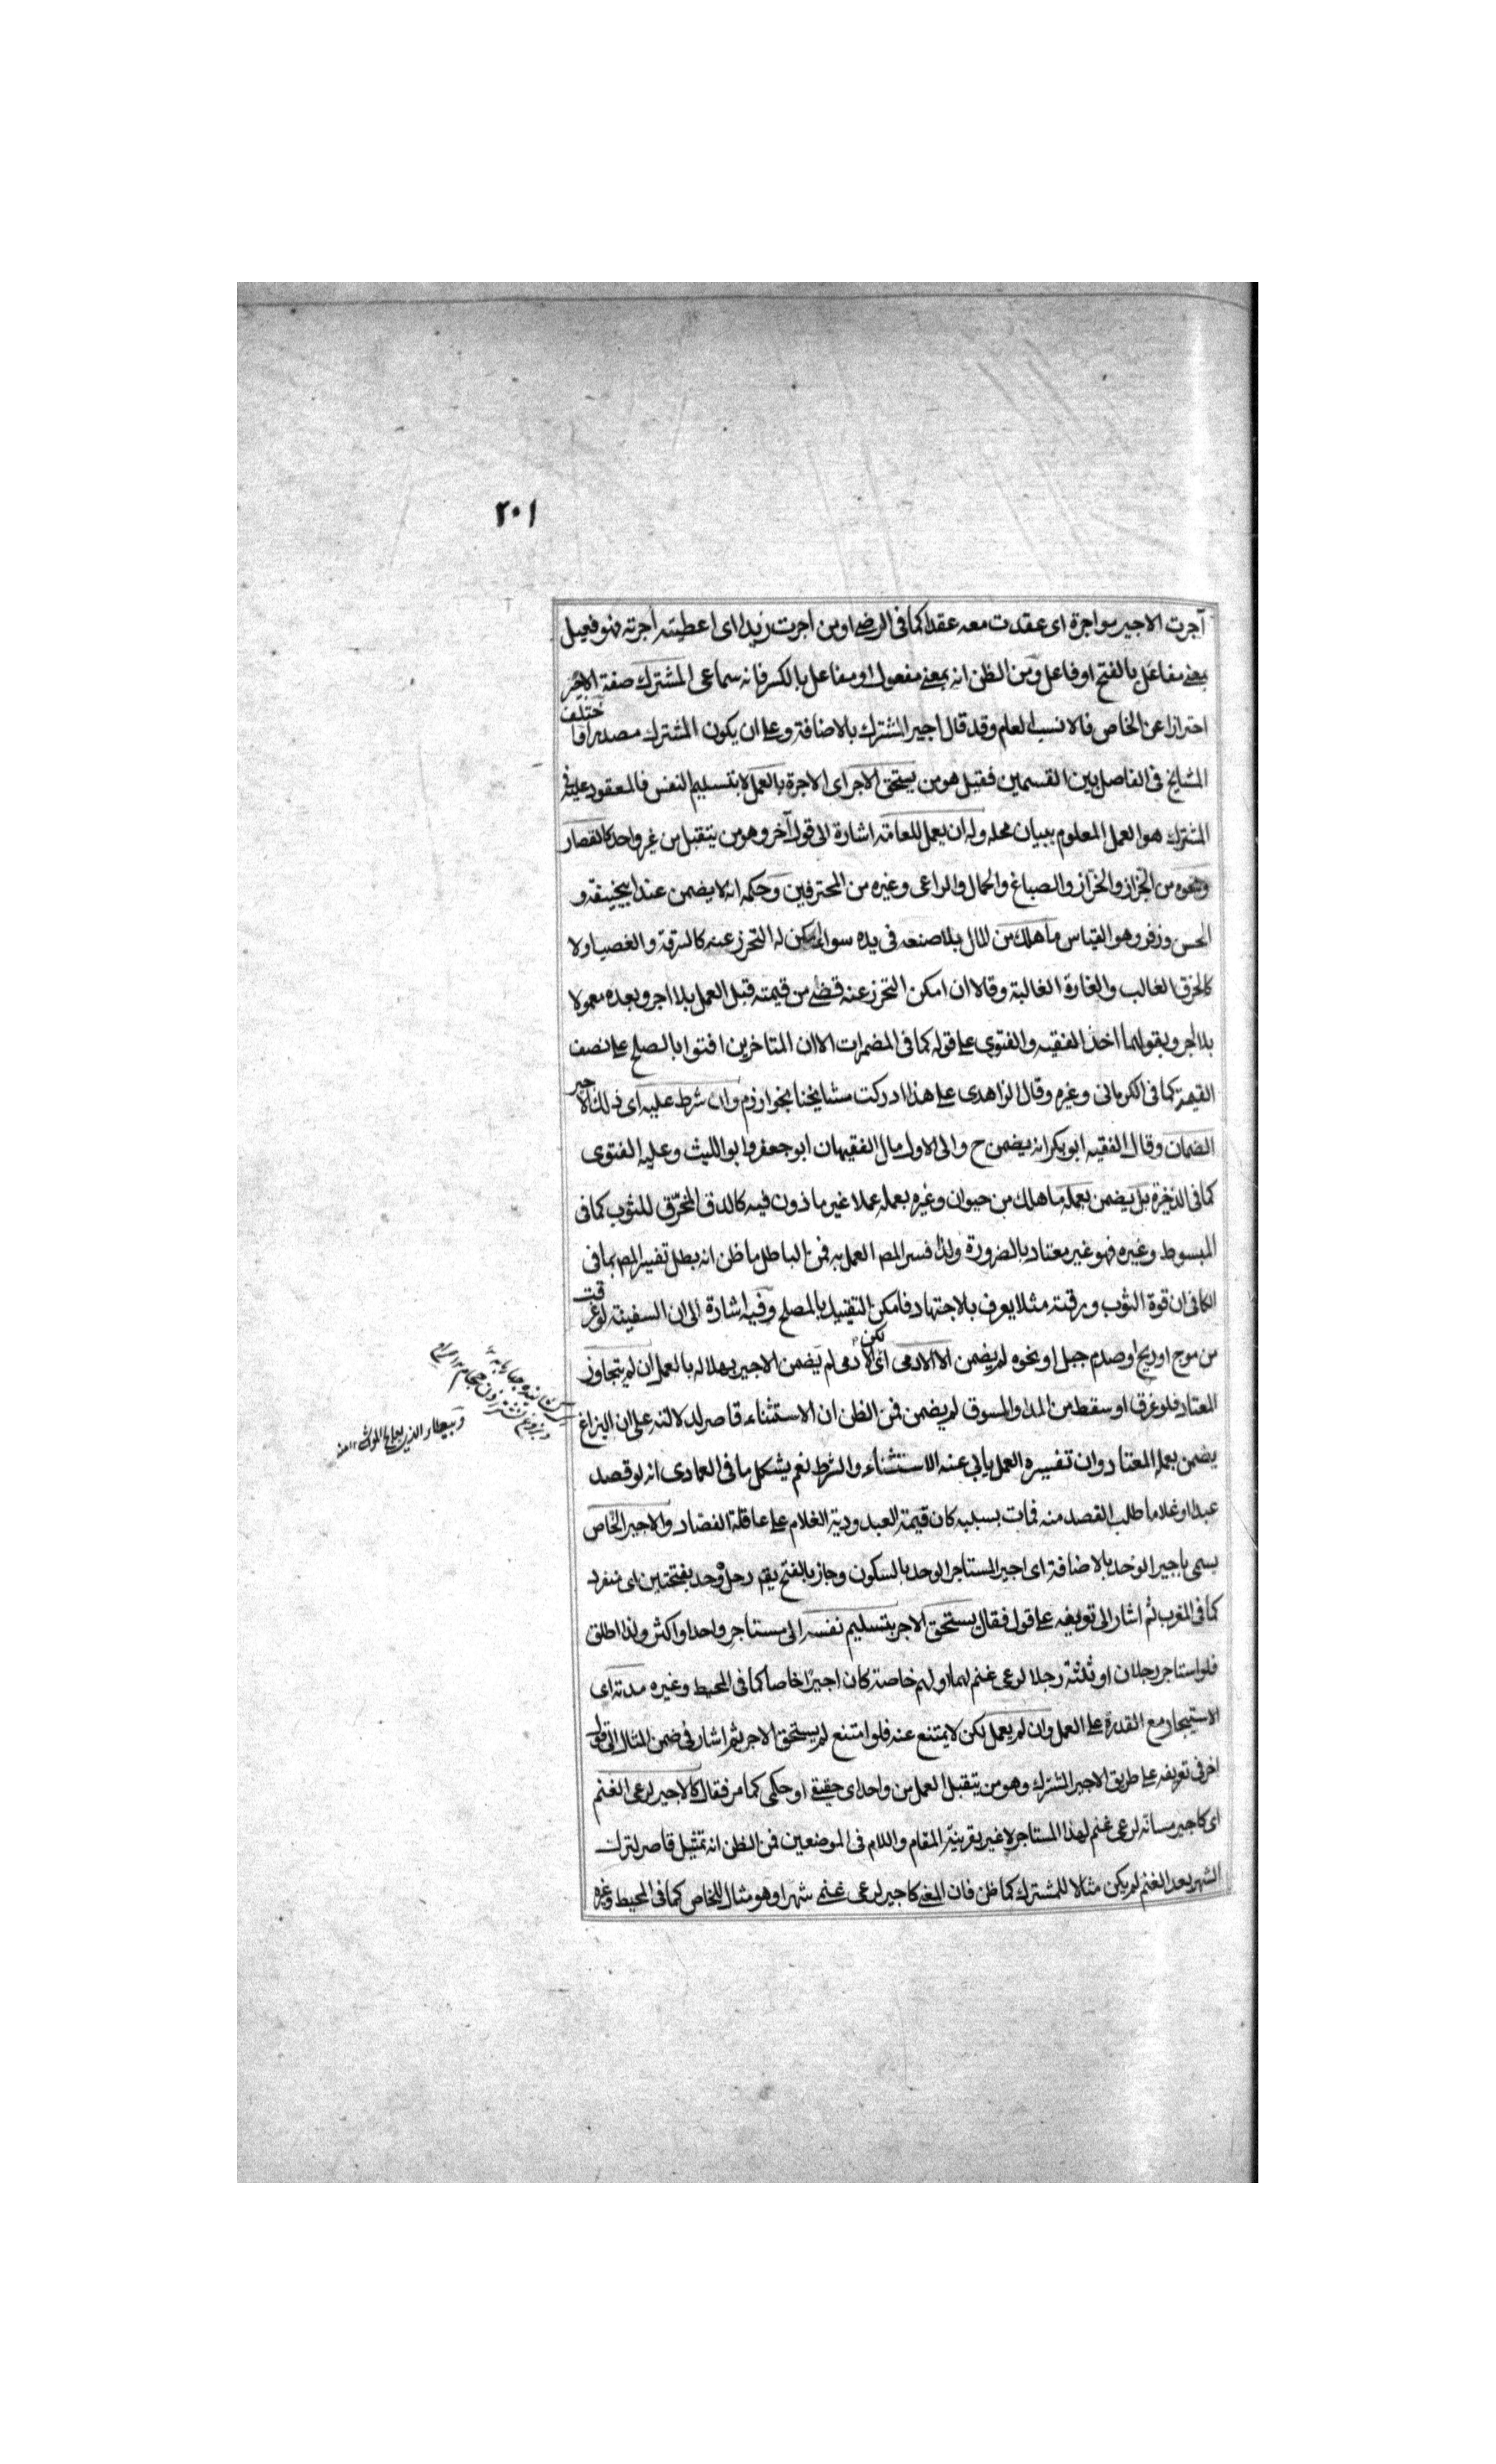 ٢٠١
آجرت الاجير مواجرة اى عقدت معه عقدا كما فى الرضى او من اجرت زيدا اى اعطيته اجرته فهو فعيل
بمعنى مفاعل بالفتح او فاعل ومن الظن انه بمعنى مفعول او مفاعل بالكسر فانه سماعى المشترك صفة الاجير
احترازا عن الخاص فالانسب العام وقد قال اجير المشترك بالاضافة وعلى ان يكون المشترك مصدرا فاختلف
المشايخ فى الفاصل بين القسمين فقيل هو من يستحق الاجر اى الاجرة بالعمل لا بتسليم النفس فالمعقود عليه فى
المشترك هو العمل المعلوم ببيان محله وله ان يعمل للعامة اشارة الى قول آخر وهو من يتقبل من غير واحد كالقصار
ونحوه من الخباز والخراز والصباغ والحمال والراعى وغيره من المحترفين وحكمه انه لا يضمن عند ابيحنيفة و
الحسن وزفر وهو القياس ما هلك من المال بلا صنعه فى يده سواء امكن له التحرز عنه كالسرقة والغصب او لا
كالحرق الغالب والغارة الغالبة وقالا ان امكن التحرز عنه قضى من قيمته قبل العمل بلا اجر وبعده معمولا
بلا اجر وبقولهما اخذ الفقيه والفتوى على قوله كما فى المضمرات الا ان المتاخرين افتوا بالصلح على نصف
القيمة كما فى الكرمانى وغيره وقال الزاهدى على هذا ادركت مشايخنا بخوارزم وان شرط عليه اى ذلك الاجير
الضمان وقال الفقيه ابو بكر انه يضمن ح والى الاول مال الفقيهان ابو جعفر وابو الليث وعليه الفتوى
كما فى الذخيرة بل يضمن بعمله ما هلك من حيوان وغيره بعمله عملا غير ماذون فيه كالدق المخرق للثوب كما فى
المبسوط وغيره فهو غير معتاد بالضرورة ولذا فسر المص العمل به فمن الباطل ما ظن انه بطل تفسير المص بما فى
الكافى ان قوة الثوب ورقته مثلا يعرف بالاجتهاد فامكن التقييد بالمصلح وفيه اشارة الى ان السفينة لو غرقت
من موج او ريح او صدم جبل او نحوه لم يضمن الا الادمى اى لكن الادمى لم يضمن الاجير بهلاكه بالعمل ان لم يتجاوز
المعتاد فلو غرق او سقط من المد والسوق لم يضمن فمن الظن ان الاستثناء قاصر لدلالته على ان البزاغ
يضمن بعمله المعتاد وان تفسيره العمل يابى عنه الاستثناء والشرط نعم يشكل ما فى العمادى انه لو فصد
عبدا او غلاما طلب الفصد منه فمات بسببه كان قيمة العبد ودية الغلام على عاقلة الفصاد والاجير الخاص
يسمى باجير الوحد بالاضافة اى اجير المستاجر الوحد بالسكون وجاز بالفتح يقم رجل وحد بفتحتين اى منفرد
كما فى المغرب ثم اشار الى تعريفه على قول فقال يستحق الاجر بتسليم نفسه الى مستاجر واحد او اكثر ولذا اطلق
فلو استاجر رجلان او ثلثة رجلا لرعى غنم لهما او لهم خاصة كان اجيرا خاصا كما فى المحيط وغيره مدته اى
الاستيجار مع القدرة على العمل وان لم يعمل لكن لا يمتنع عنه فلو امتنع لم يستحق الاجر ثم اشار فى ضمن المثال الى قول
اخر فى تعريفه على طريق الاجير المشترك وهو من يتقبل العمل من واحد اى حقيقى او حكمى كما مر فقال كالاجير لرعى الغنم
اى كاجير مسانه لرعى غنم لهذا المستاجر لا غير بقرينة المقام واللام فى الموضعين فمن الظن انه تمثيل قاصر لترك
الشهر بعد الغنم لم يكن مثالا للمشترك كما ظن فان المعنى كاجير لرعى غنمى شهرا وهو مثال للخاص كما فى المحيط وغيره
وبيطار الذى يعالج المواشى ١٢ منه